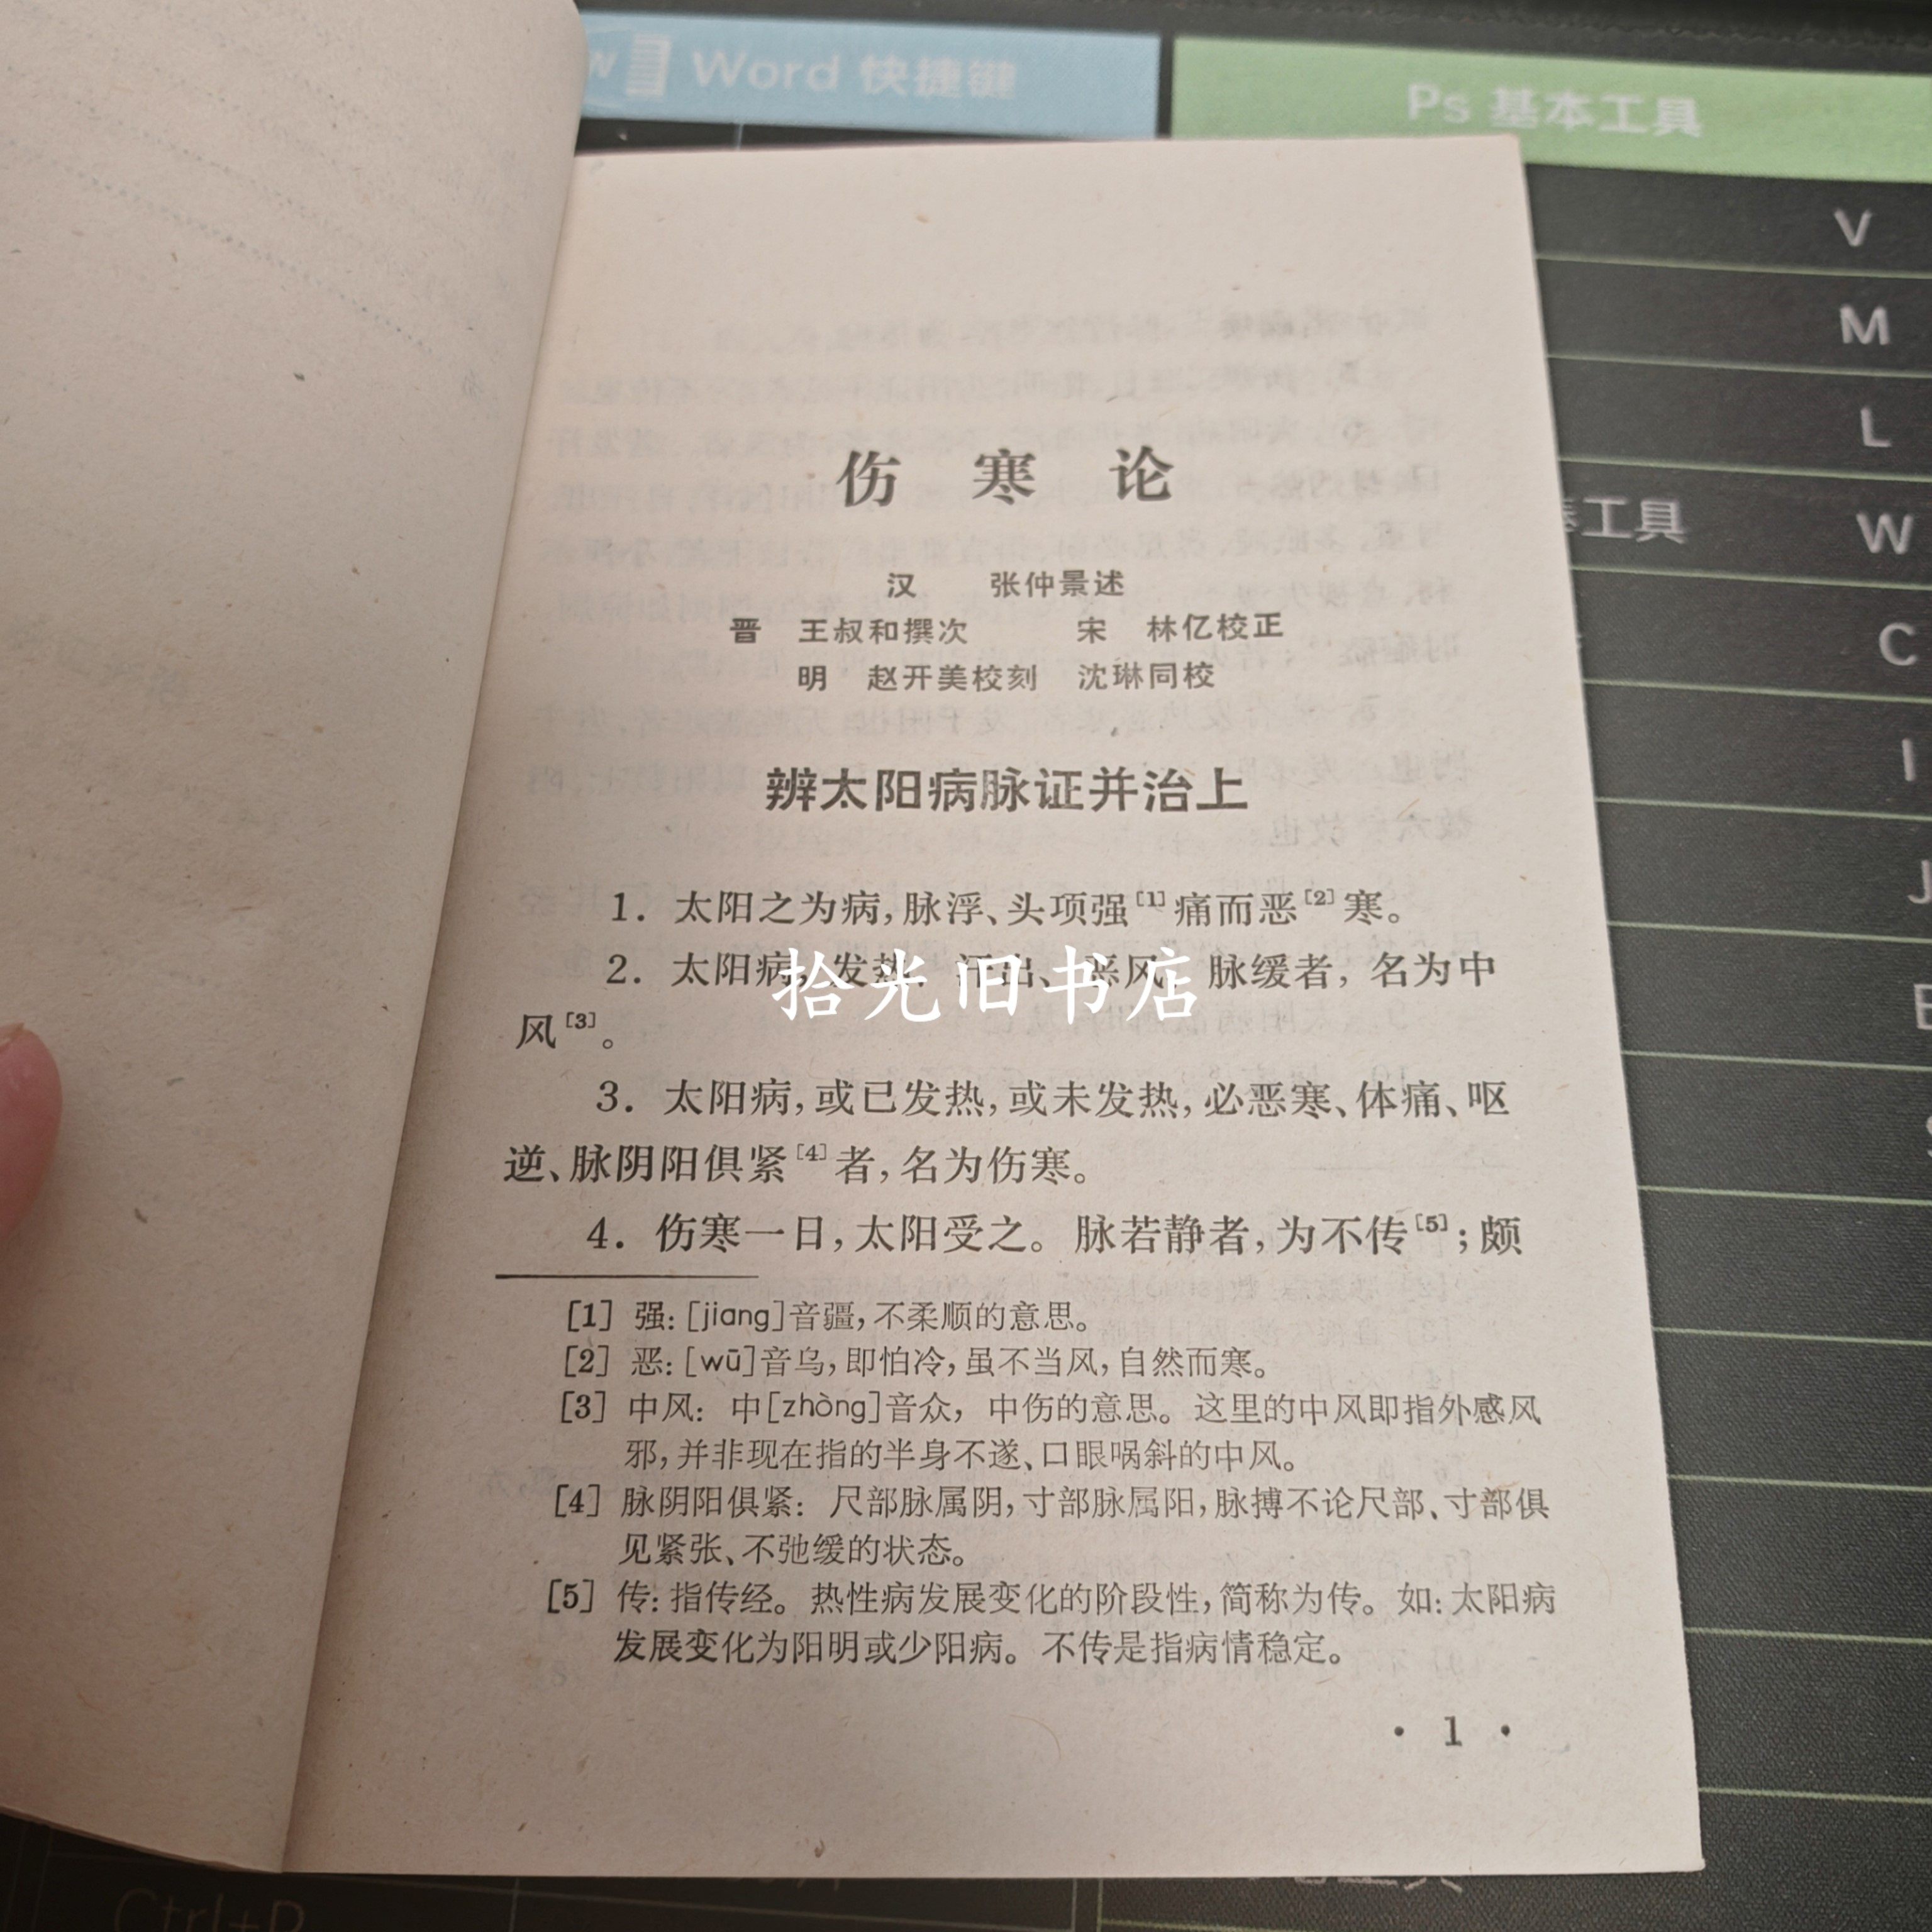 Word 快捷键
Ps 基本工具
V
M
L
工具 W
C
I
J
伤 寒 论
汉 张仲景述
晋 王叔和撰次 宋 林亿校正
明 赵开美校刻 沈琳同校
辨太阳病脉证并治上
1. 太阳之为病,脉浮、头项强[1]痛而恶[2]寒。
2. 太阳病,发热,汗出、恶风,脉缓者,名为中
拾光旧书店
风[3]。
3. 太阳病,或已发热,或未发热,必恶寒、体痛、呕
逆、脉阴阳俱紧[4]者,名为伤寒。
4. 伤寒一日,太阳受之。脉若静者,为不传[5];颇
[1] 强:[jiang]音疆,不柔顺的意思。
[2] 恶:[wū]音乌,即怕冷,虽不当风,自然而寒。
[3] 中风:中[zhòng]音众,中伤的意思。这里的中风即指外感风
邪,并非现在指的半身不遂、口眼㖞斜的中风。
[4] 脉阴阳俱紧:尺部脉属阴,寸部脉属阳,脉搏不论尺部、寸部俱
见紧张、不弛缓的状态。
[5] 传:指传经。热性病发展变化的阶段性,简称为传。如:太阳病
发展变化为阳明或少阳病。不传是指病情稳定。
· 1 ·
Ctrl+P